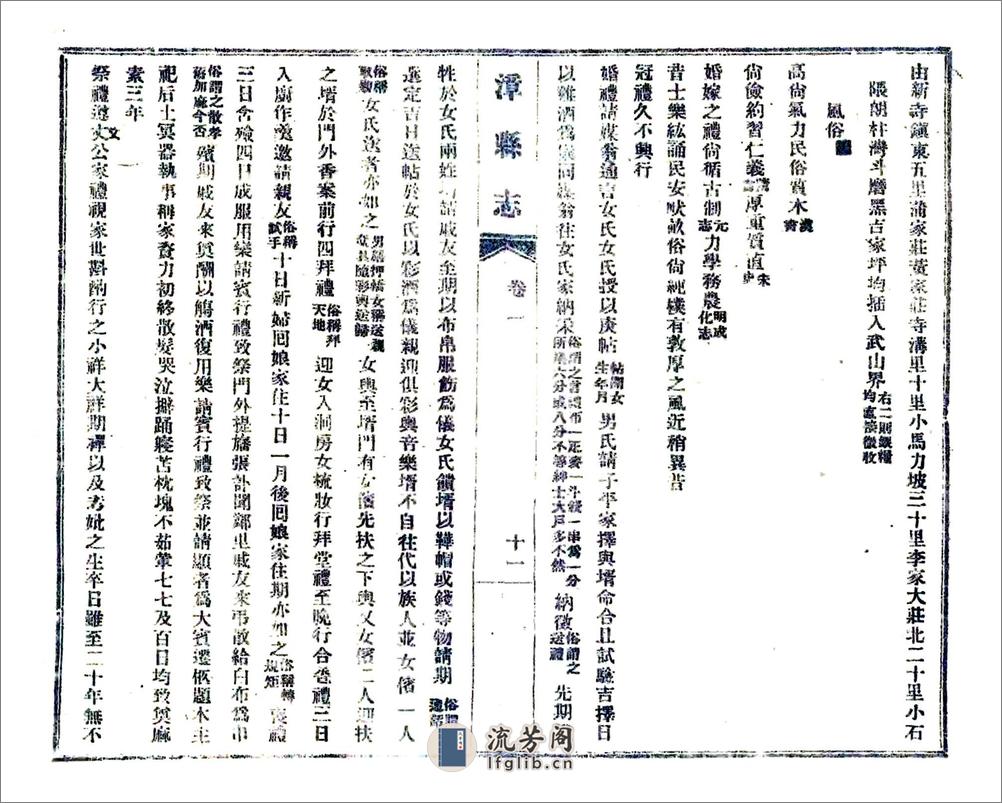 由新寺鎮東五里蒲家莊黃家莊寺溝里十里小馬力坡三十里李家大莊北二十里小石
隈朗柱灣斗磨黑吉家坪均插入武山界右二則銀糧均處漳徵收
風俗
高尚氣力民俗質木漢書
尚儉約習仁義厚重質直宋史
婚嫁之禮尚循古制元志力學務農明成化志
昔士樂絃誦民安畎畝俗尚純樸有敦厚之風近稍異昔
冠禮久不興行
婚禮請媒翁通言女氏女氏授以庚帖帖開女生年月男氏請子平家擇與壻命合且試驗吉擇日
以雞酒爲案同媒翁往女氏家納采俗謂之首禮布一疋麥一斗錢一串爲一分所求六分或八分不等紳士大戶多不然納徵俗謂之送禮先期
漳縣志
卷一
十一
牲於女氏兩姓請戚友至期以布帛服飾爲儀女氏饋壻以鞾帽或錢等物請期俗謂
選定吉日送帖於女氏以彩酒爲儀親迎俱彩輿音樂壻不自往代以族人並女儐一人
俗稱女氏送者亦如之男稱押轎女稱送親奩具隨彩輿送歸女輿至壻門有女儐先扶之下輿又女儐二人迎扶
之壻於門外香案前行四拜禮俗稱拜天地迎女入洞房女梳妝行拜堂禮至晚行合卺禮三日
入廚作羹邀請親友俗稱試手十日新婦回娘家住十日一月後回娘家住期亦如之俗稱轉規矩喪禮
三日含殮四日成服用樂請賓行禮致祭門外禮旛張訃聞鄰里戚友來弔散給白布爲巾
俗謂之散孝舊加麻今否殯期戚友來奠酬以觴酒復用樂請賓行禮致祭並請顯者爲大賓遷柩題木主
祀后土冥器執事稱家賚力初終散髮哭泣擗踊寢苫枕塊不茹葷七七及百日均致奠麻
素三年
祭禮遵文公家禮視家世斟酌行之小祥大祥期禫以及考妣之生卒日雖至二十年無不
流芳阁
lfglib.cn